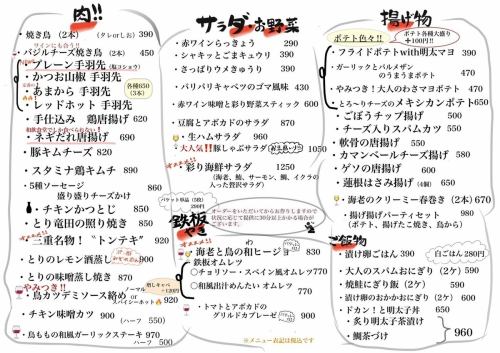 肉!!
・焼き鳥(2本)(タレorしお) 390
ワインにも合う!!
・バジルチーズ焼き鳥(2本) 450
・プレーン手羽先(塩コショウ)
・かつお山椒 手羽先
・あまから 手羽先
・レッドホット 手羽先
各種650(3本)
・手仕込み 鶏唐揚げ 690
和飲食堂でしか食べられない!
・ネギだれ唐揚げ 690
・豚キムチーズ 820
オススメ!!
・スタミナ鶏キムチ 890
・5種ソーセージ
盛り盛りチーズかけ 860
・チキンかつとじ 950
・とり竜田の照り焼き 850
・三重名物！トンテキ 920
・とりのレモン酒蒸し 900
・とりの味噌蒸し焼き 870
やみつき!!
・鳥カツデミソース絡め orスパイシーホット 920
ノーマル
増しキャベ+120円
・チキン味噌カツ 900
(ハーフ 500)
・鳥ももの和風ガーリックステーキ 970
(ハーフ 550)
サラダ・お野菜
・赤ワインらっきょう 290
・シャキッとごまキュウリ 390
・さっぱりウメきゅうり 390
・パリパリキャベツのゴマ風味 430
・赤ワイン味噌と彩り野菜スティック 690
・豆腐とアボカドのサラダ 870
・生ハムサラダ 960
・大人気!!豚しゃぶサラダ 1050
オススメ!!
・彩り海鮮サラダ 1250
(海老、鮪、サーモン、鯛、イクラの入った贅沢サラダ)
バケット単品(5枚) 290円
鉄板やき
オーダーをいただいてからお作りしますので状況に応じて提供に30分以上かかる場合がございます。
オススメ!!
・海老と鳥の和ヒージョ 830
わ
・鉄板オムレツ
○チョリソー・スペイン風オムレツ 770
○和風出汁めんたい オムレツ 770
・トマトとアボカドのグリルカプレーゼ 900
※メニュー表記は税込です
揚げ物
ポテト色々!!
ポテト各種大盛り+100円!!
・フライドポテトwith明太マヨ 390
・ガーリックとパルメザンのうまうまポテト 470
・やみつき！大人のわさマヨポテト 470
・とろ〜りチーズのメキシカンポテト 650
・ごぼうチップ揚げ 450
・チーズ入りスパムカツ 570
・軟骨の唐揚げ 550
・カマンベールチーズ揚げ 580
・ゲソの唐揚げ 600
・蓮根はさみ揚げ(4個) 690
・海老のクリーミー春巻き(2本) 670
・揚げ揚げパーティセット 980
(ポテト、揚げたこ焼き、鳥から)
ご飯物
白ごはん 280円
・漬け卵ごはん 390
・大人のスパムおにぎり(2ケ) 590
・焼鮭にぎり飯(2ケ) 590
・漬け卵のおかかおにぎり(2ケ) 690
・ドカン！と明太子丼 690
・炙り明太子茶漬け
・鯛茶づけ
960